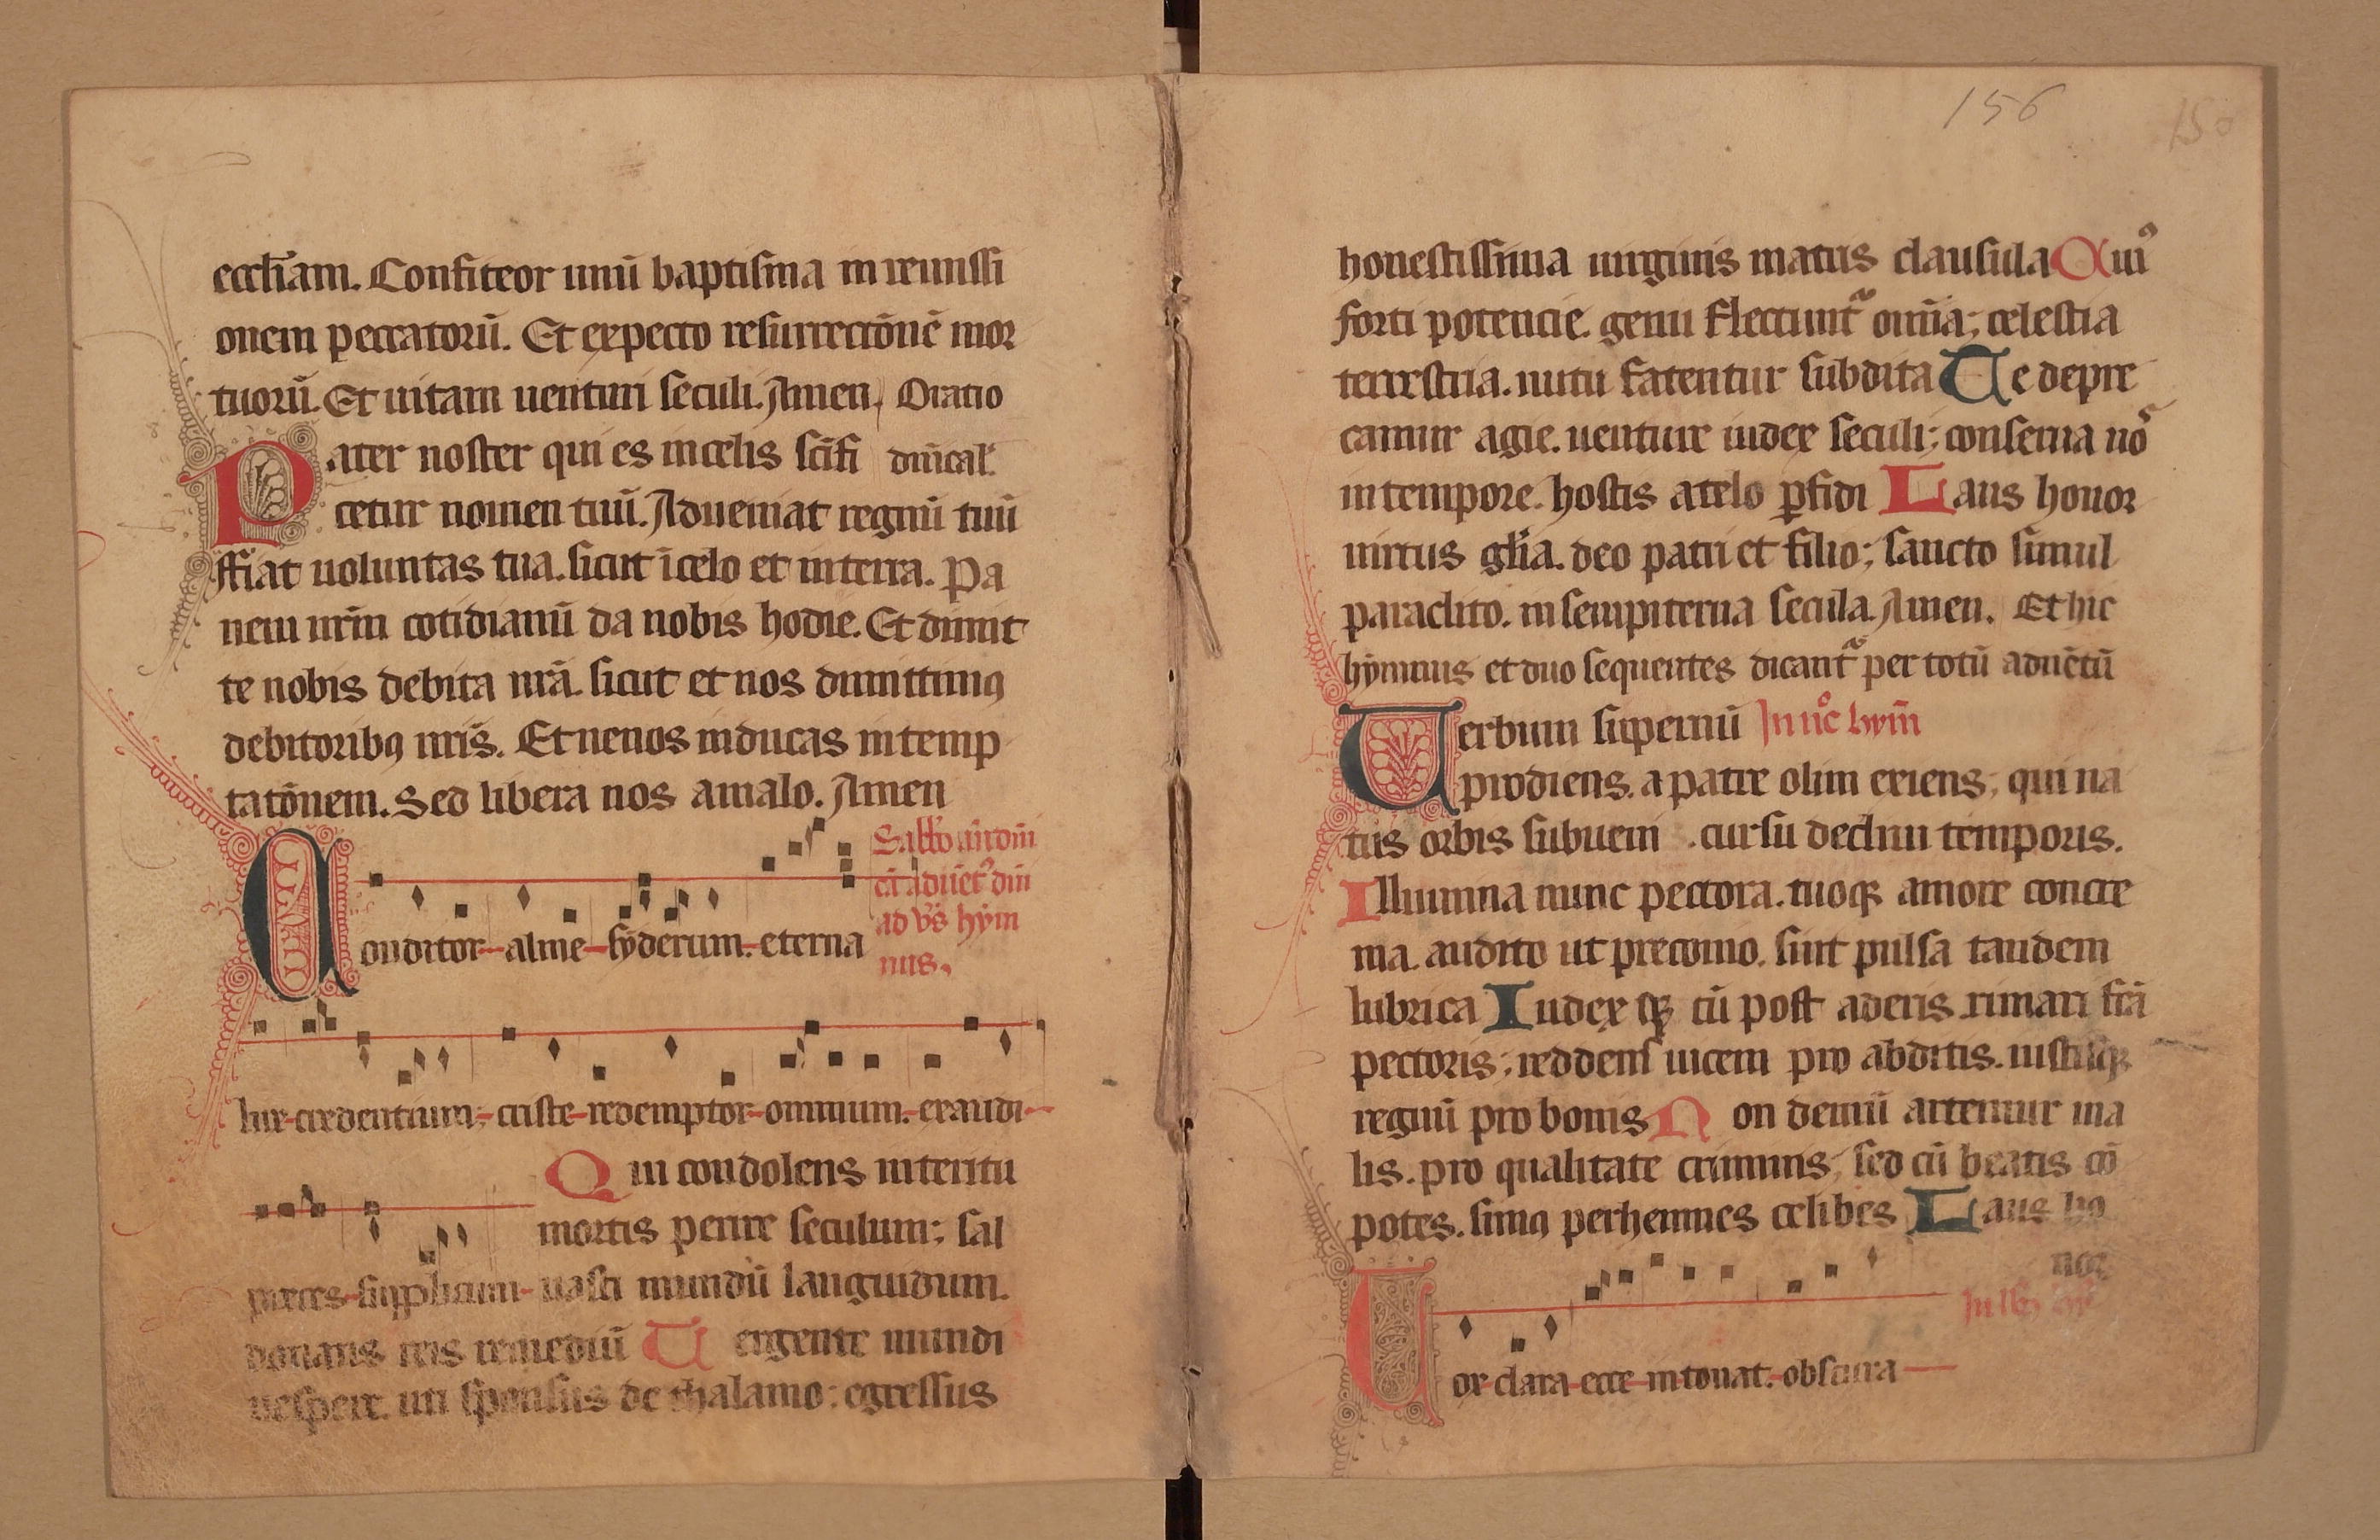 eccl̄iam. Confiteor unū baptiſma in remiſſi
onem peccatorū. Et expecto reſurrectōnē mor
tuorū. Et uitam uenturi ſeculi. Amen. Oratio
Pater noſter qui es in celis ſc̄ifi dn̄ical.
cetur nomen tuū. Adueniat regnū tuū
ffiat uoluntas tua. ſicut ī celo et in terra. Pa
nem nr̄m cotidianū da nobis hodie. Et dimit
te nobis debita nr̄a. ſicut et nos dimittimꝯ
debitoribꝯ nr̄is. Et ne nos inducas in temp
tatōnem. Sed libera nos a malo. Amen
Sabb̄o an̄ dn̄i
cā aduēt dn̄i
ad v̄s hym
nus.
Conditor alme ſyderum. eterna
lux credentium; criſte redemptor omnium. exaudi
Qui condolens interitu
mortis perire ſeculum; ſal
preces ſupplicum uaſti mundū languidum.
donans reis remediū Vergente mundi
ueſpere. uti ſponſus de thalamo; egreſſus
156
150
honeſtiſſima uirginis matris clauſula Cuiꝰ
forti potencie. genu flectunt᷑ om̄ia; celeſtia
terreſtria. nutu fatentur ſubdita Te depre
camur agie. uenture iudex ſeculi; conſerua noˢ
in tempore. hoſtis a telo ꝑfidi Laus honor
uirtus gl̄ia. deo patri et filio; ſancto ſimul
paraclito. in ſempiterna ſecula. Amen. Et hic
hymnus et duo ſequentes dicant᷑ per totū aduētū
Verbum ſupernū In noc̄ hym̄
prodiens. a patre olim exiens; qui na
tus orbis ſubueni . curſu decliui temporis.
Illumina nunc pectora. tuoqꝫ amore concre
ma. audito ut preconio. ſint pulſa tandem
lubrica Iudexqꝫ cū poſt aderis rimari fc̄a
pectoris; reddens uicem pro abditis. iuſtiſqꝫ
regnū pro bonis Non demū artemur ma
lis. pro qualitate criminis; ſed cū beatis cō
potes. ſimꝯ perhennes celibes Laus ho
nor
In lb̄
Vox clara ecce intonat. obſcura